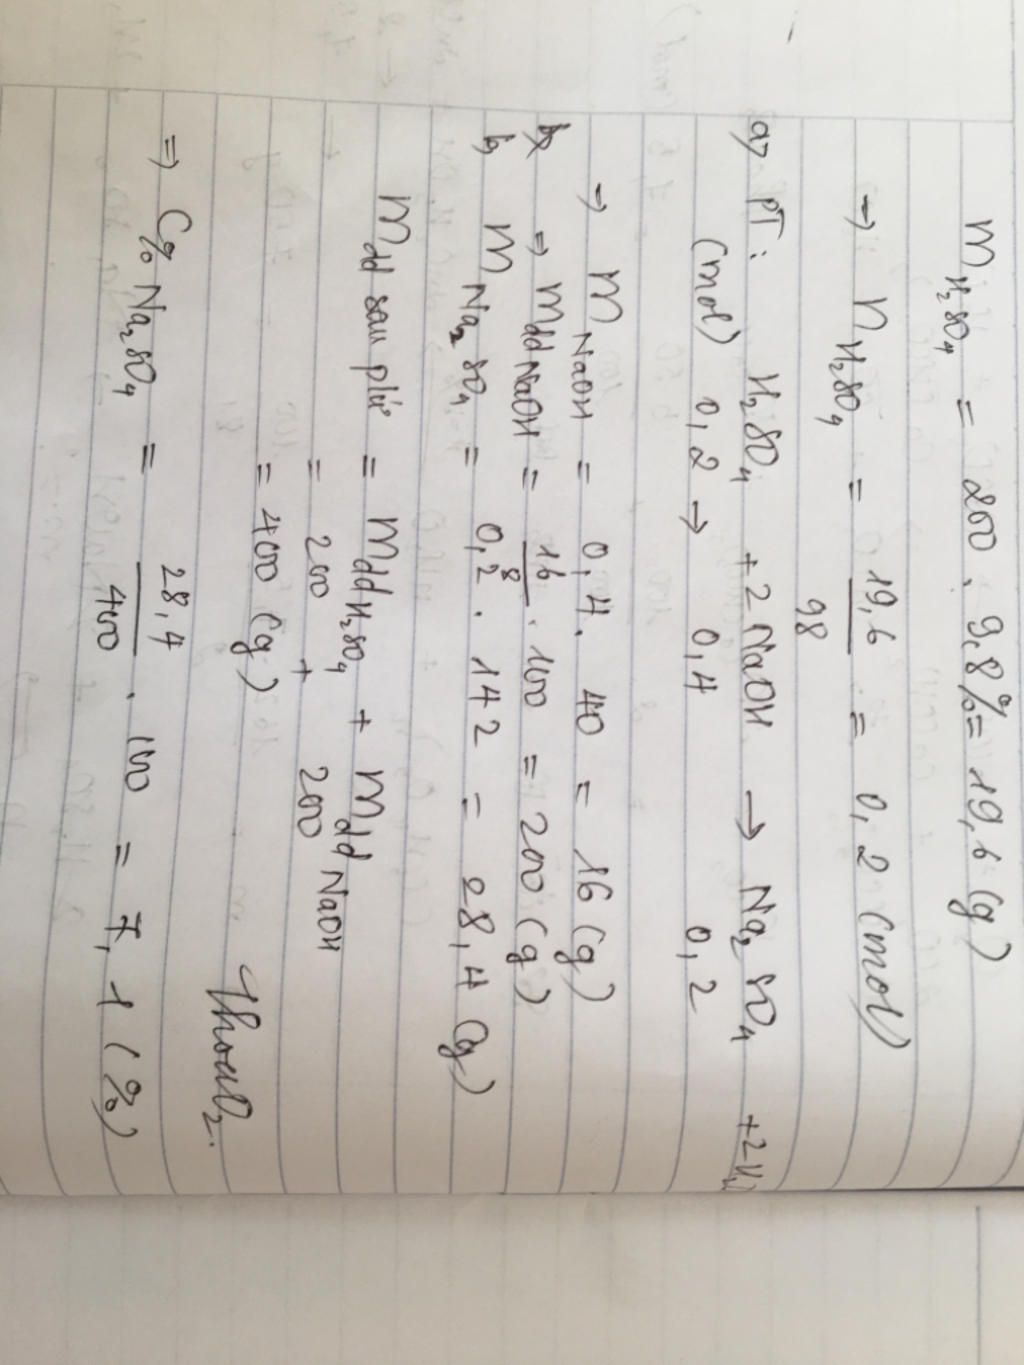 m H₂SO₄ = 200 . 9,8% = 19,6 (g)
→ n H₂SO₄ = 19,6 / 98 = 0,2 (mol)
a, PT: H₂SO₄ + 2 NaOH → Na₂SO₄ + 2H₂
(mol) 0,2 → 0,4 0,2
→ m NaOH = 0,4 . 40 = 16 (g)
⇒ m dd NaOH = 16 / 8 . 100 = 200 (g)
b, m Na₂SO₄ = 0,2 . 142 = 28,4 (g)
m dd sau pứ = m dd H₂SO₄ + m dd NaOH
= 200 + 200
= 400 (g)
⇒ C% Na₂SO₄ = 28,4 / 400 . 100 = 7,1 (%)